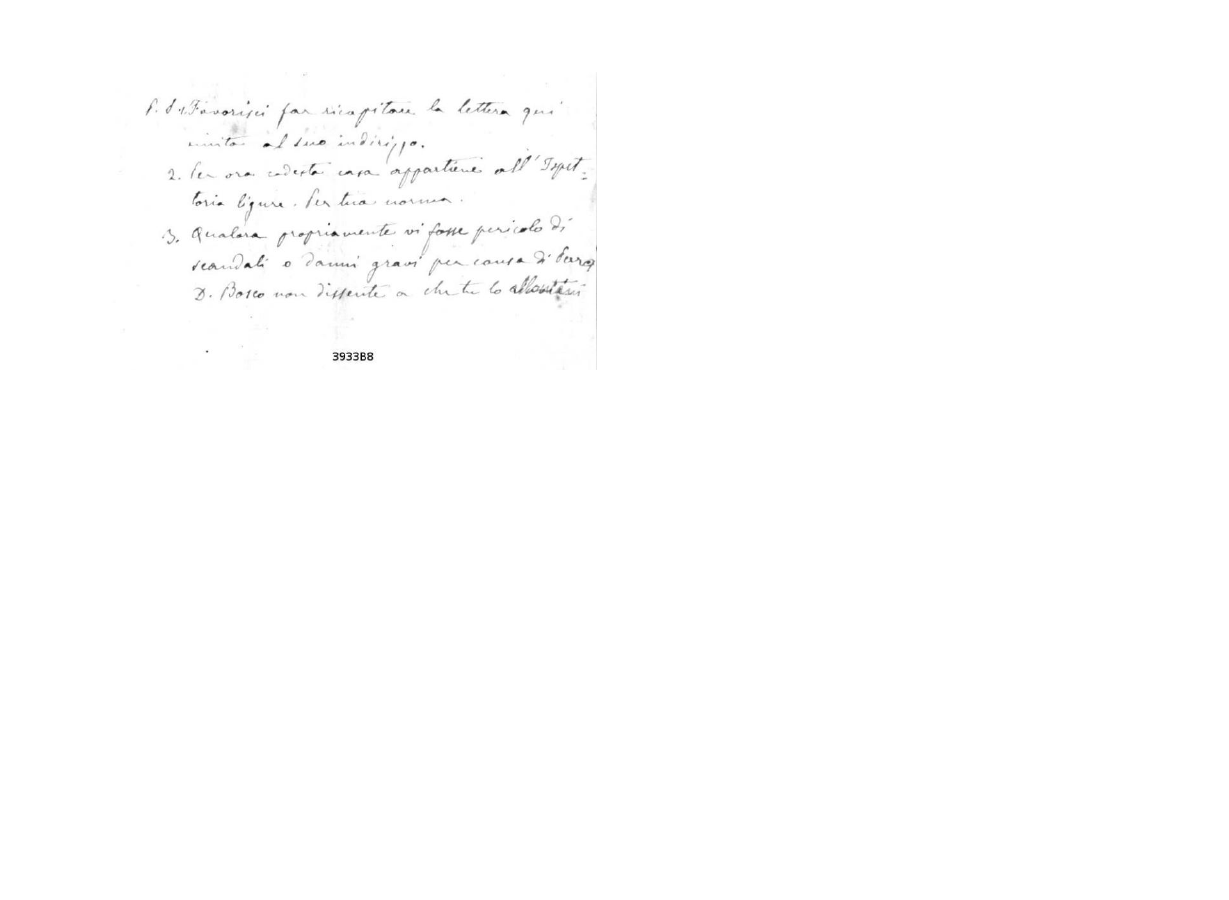 P. S. 1. Favorisci far ricapitare la lettera qui
unita al suo indirizzo.
2. Per ora codesta casa appartiene all' Ispet=
toria ligure. Per tua norma.
3. Qualora propriamente vi fosse pericolo di
scandali o danni gravi per causa di
D. Bosco non dissente a che tu lo allontani
3933B8